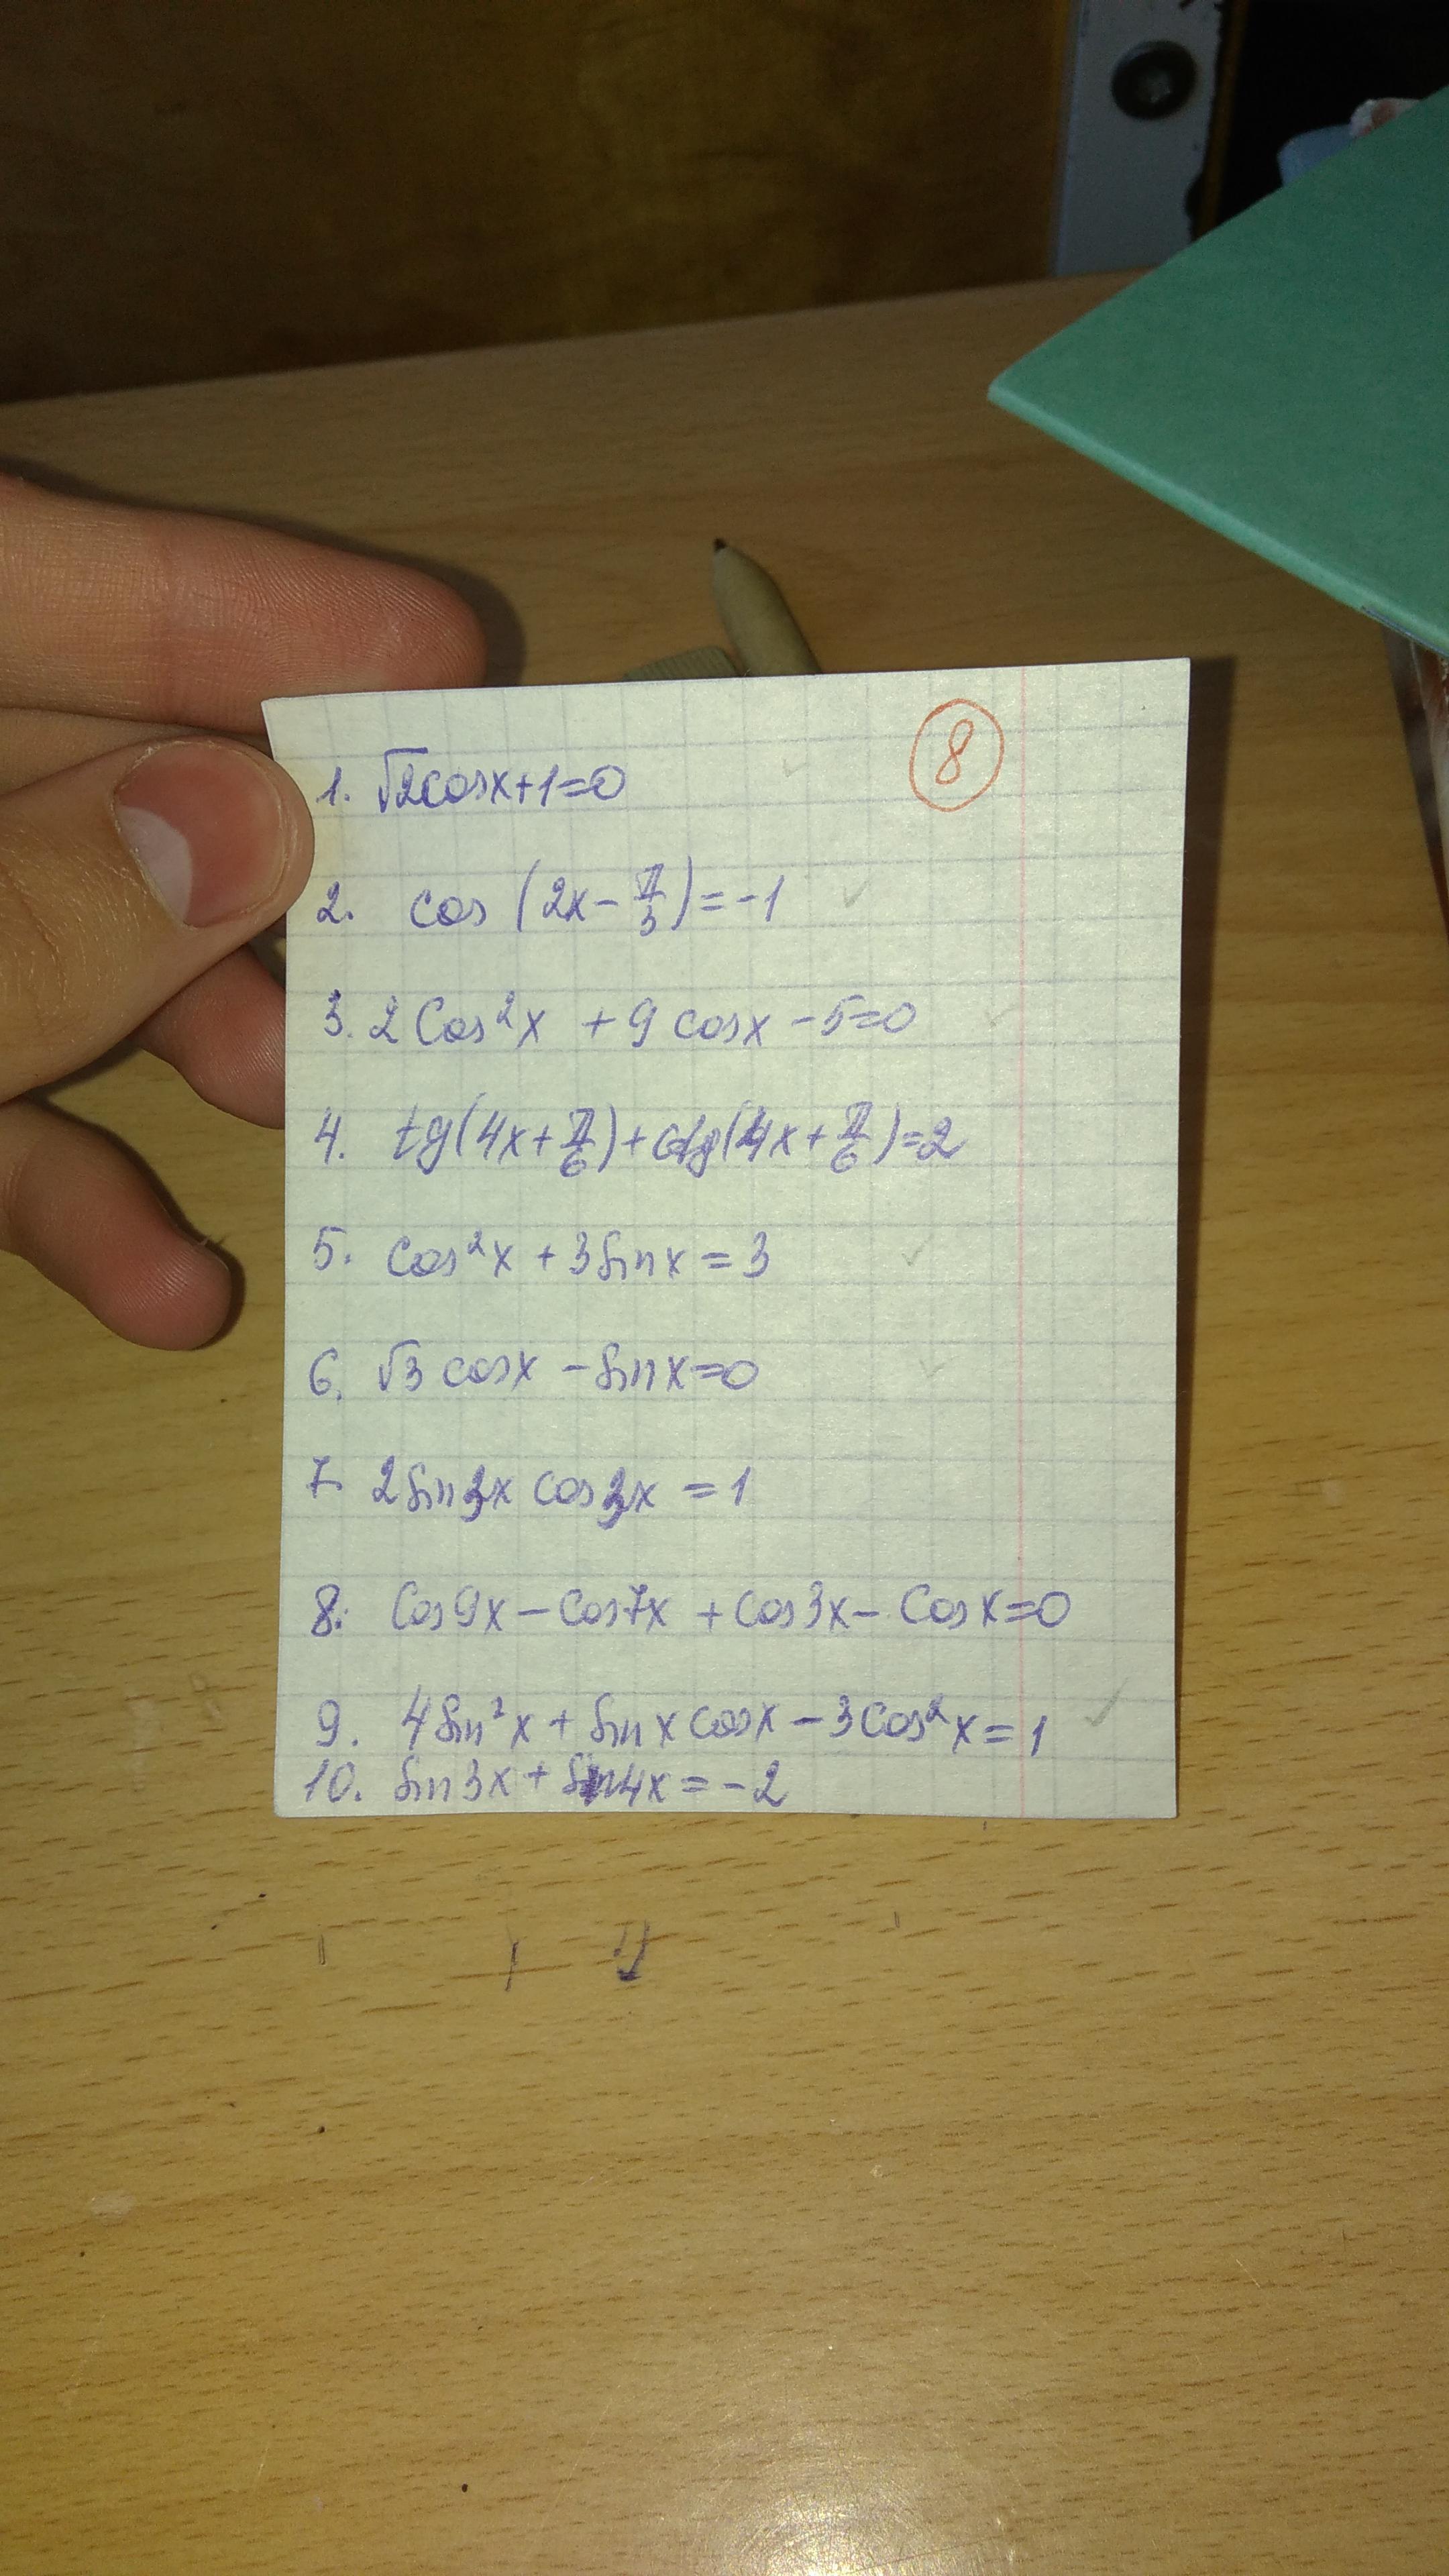 8
1. √2cosx+1=0
2. cos (2x- π/3)=-1
3. 2 Cos²x + 9 cosx -5=0
4. tg(4x+π/6)+ctg(4x+π/6)=2
5. cos²x + 3sinx = 3
6. √3 cosx - sinx=0
7. 2sin3x cos3x = 1
8. Cos9x - Cos7x + Cos3x - Cosx=0
9. 4sin²x + sinx cosx - 3cos²x = 1
10. sin3x + sin4x = -2